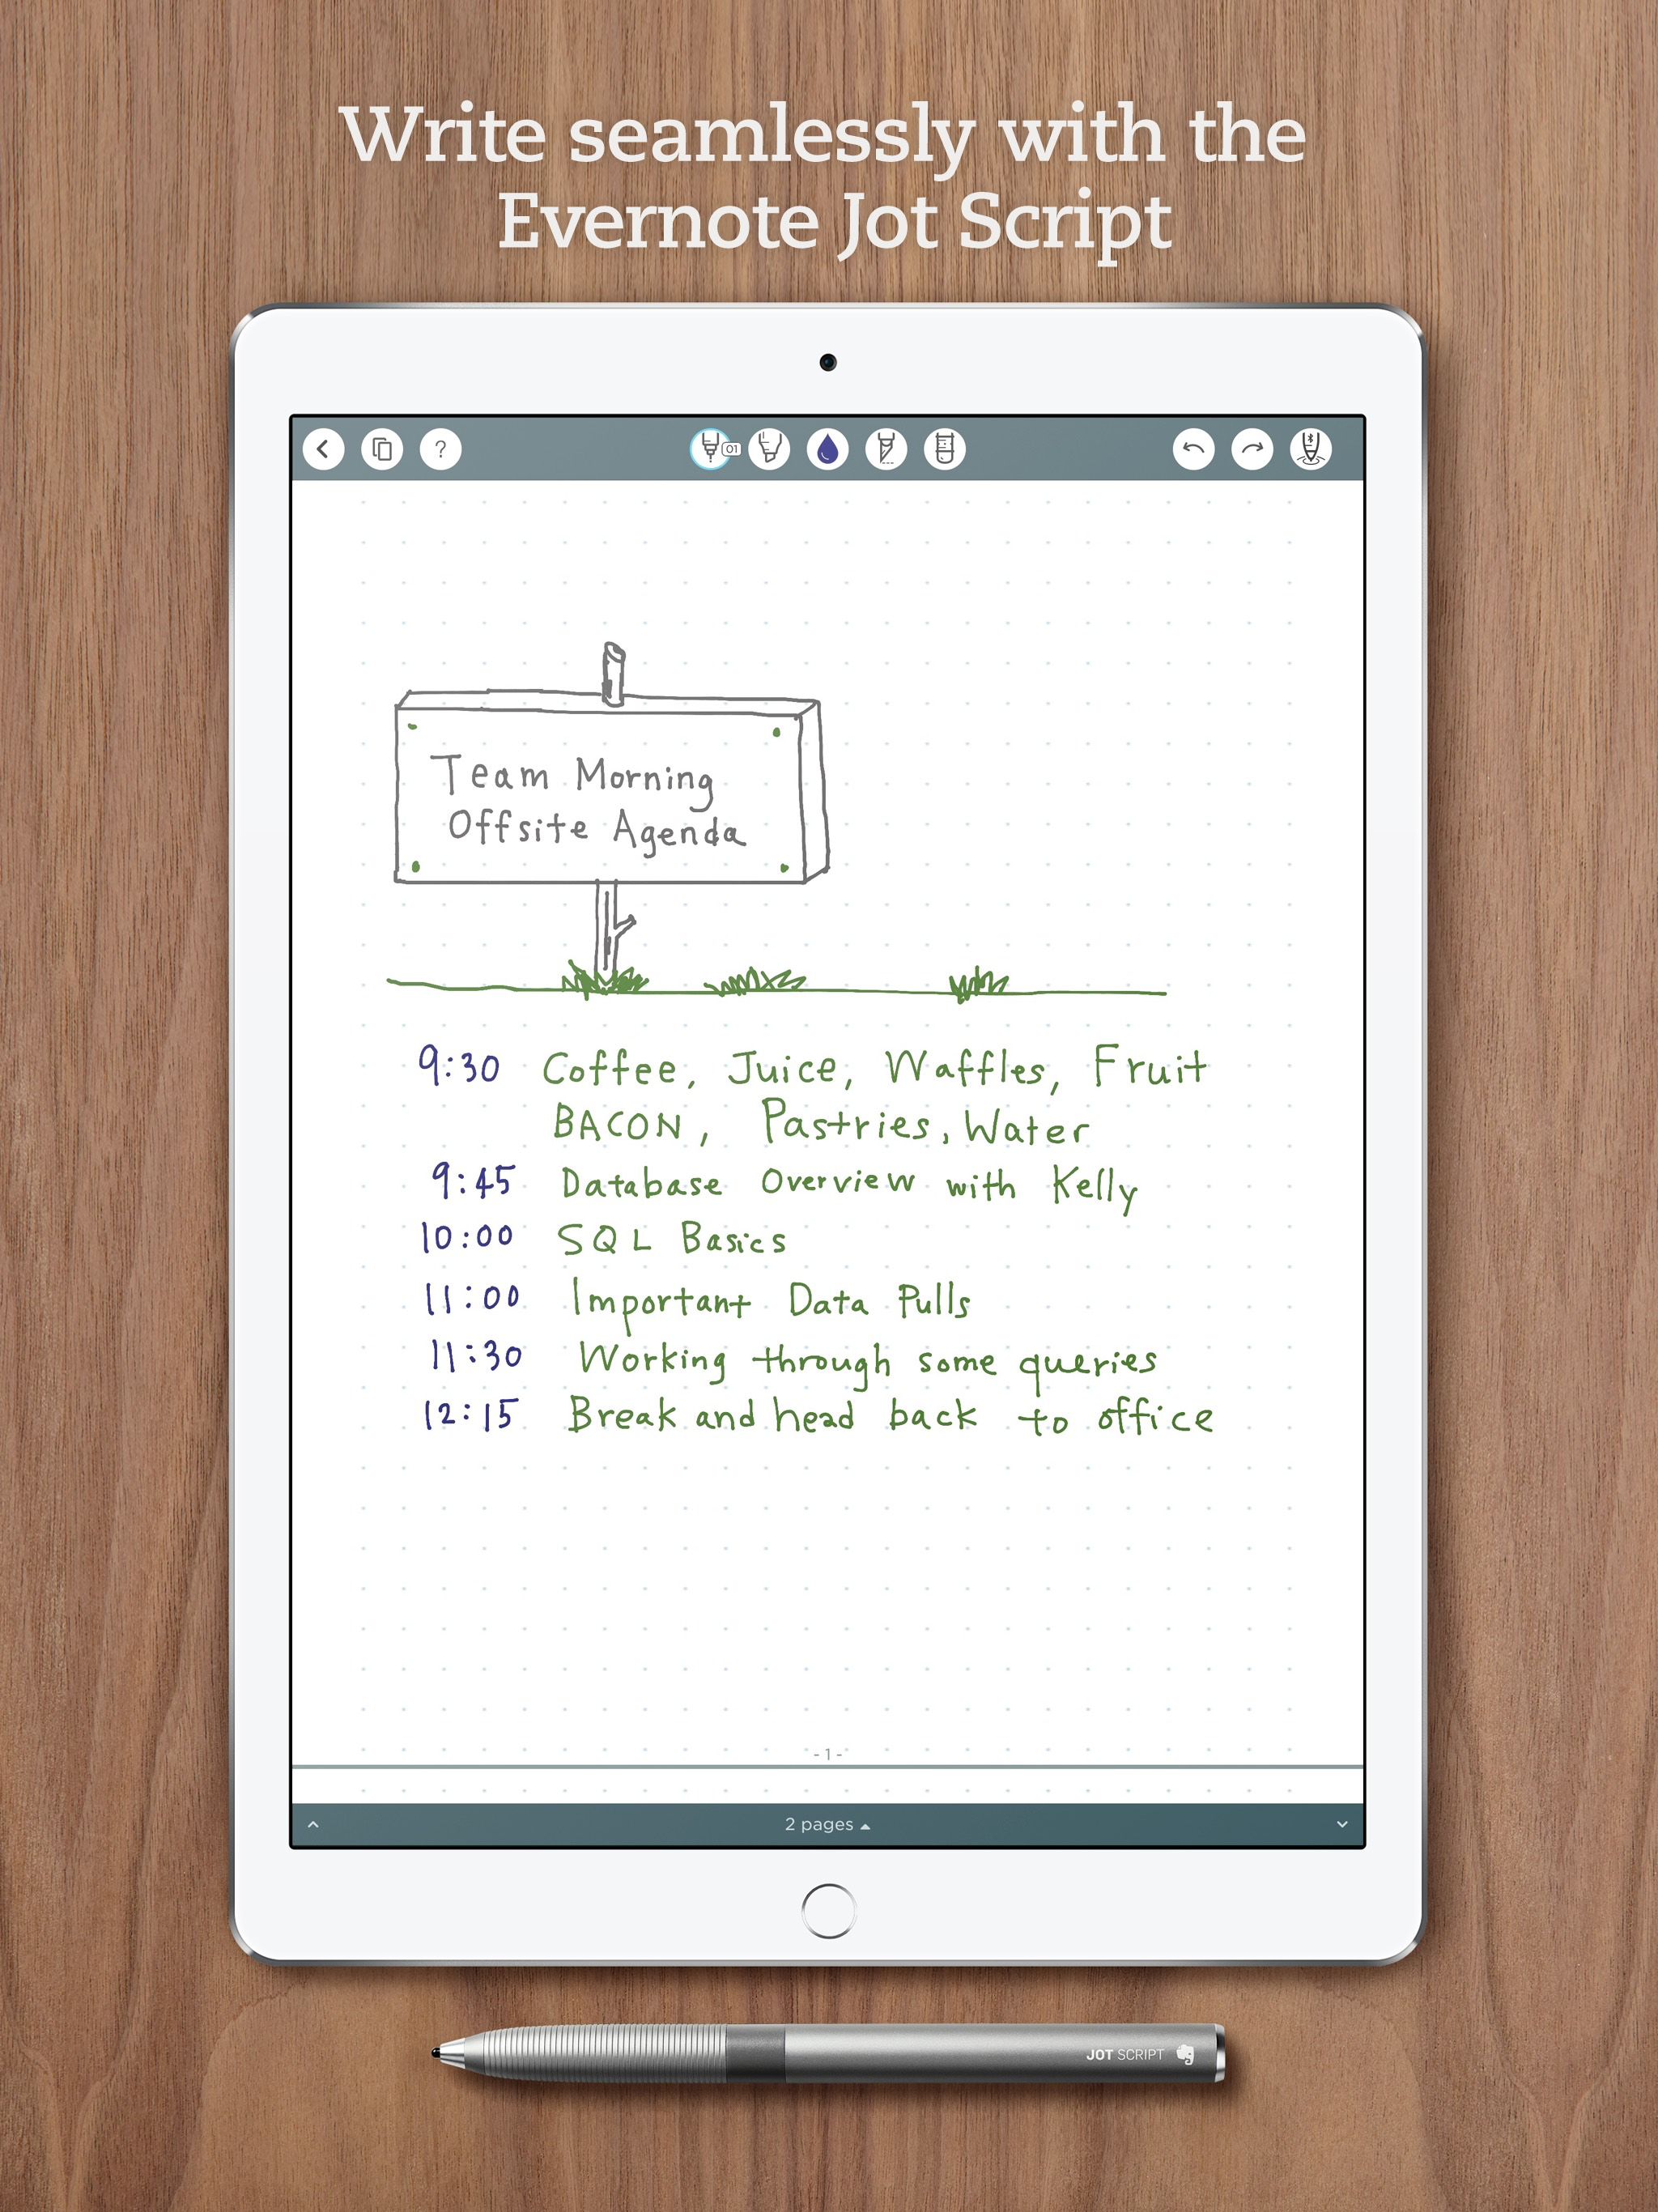 Write seamlessly with the
Evernote Jot Script
?
01
Team Morning
Offsite Agenda
9:30 Coffee, Juice, Waffles, Fruit
BACON, Pastries, Water
9:45 Database Overview with Kelly
10:00 SQL Basics
11:00 Important Data Pulls
11:30 Working through some queries
12:15 Break and head back to office
- 1 -
2 pages
JOT SCRIPT